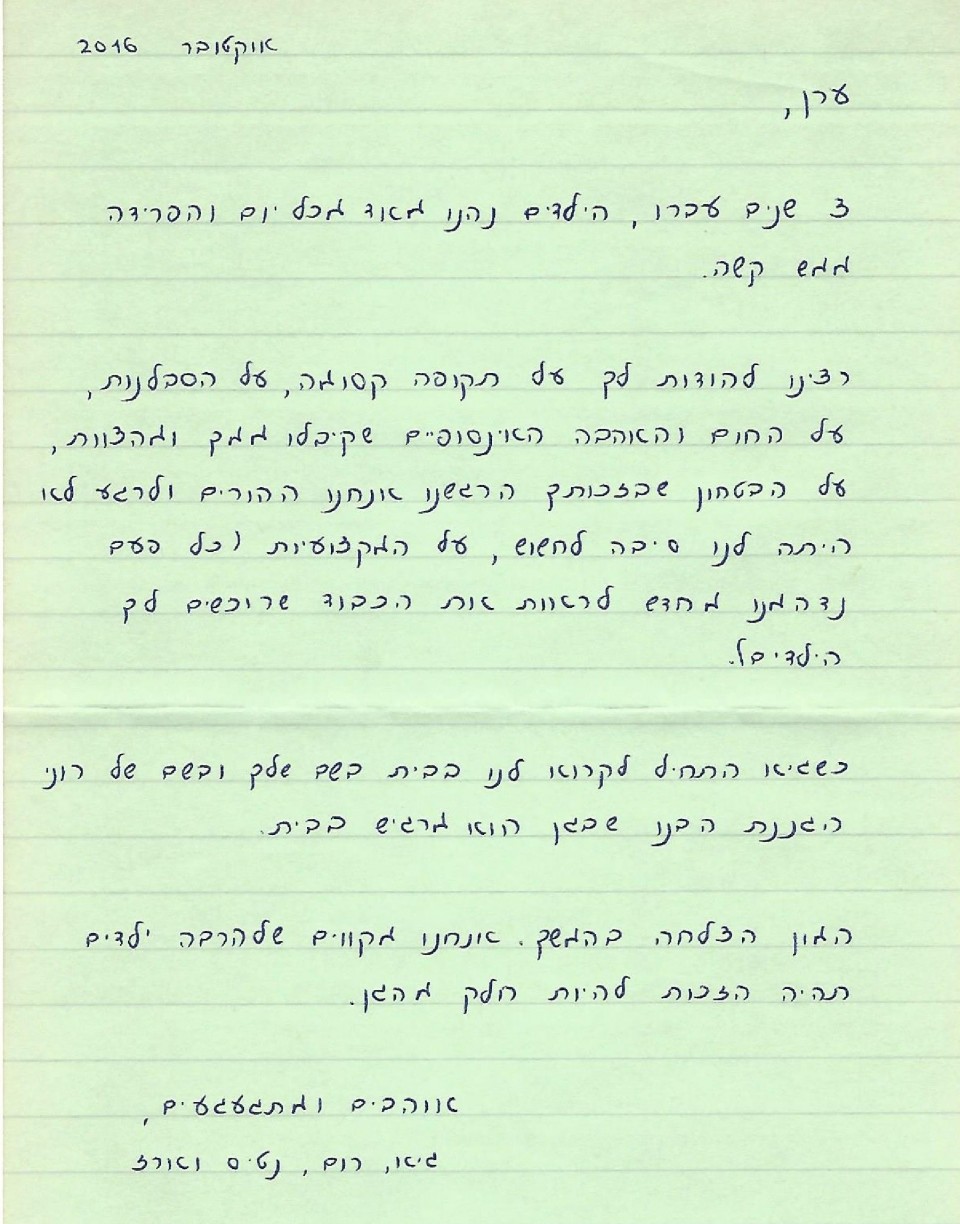 אוקטובר 2016
ערן,
3 שנים עברו, הילדים נהנו מאוד מכל יום והפרידה
ממש קשה.
רצינו להודות לך על תקופה קסומה, על הסבלנות,
על החום והאהבה האינסופיים שקיבלו ממך ומהצוות,
על הבטחון שבזכותך הרגשנו אנחנו ההורים ולרגע לא
היתה לנו סיבה לחשוש, על המקצועיות (כל פעם
נדהמנו מחדש לראות את הכבוד שרוכשים לך
הילדים).
כשגיא התחיל לקרוא לנו בבית בשם שלך ובשם של רוני
הגננת הבנו שבגן הוא מרגיש בבית.
המון הצלחה בהמשך. אנחנו מקווים שלהרבה ילדים
תהיה הזכות להיות חלק מהגן.
אוהבים ומתגעגעים,
גיא, רום, נטיס וארז